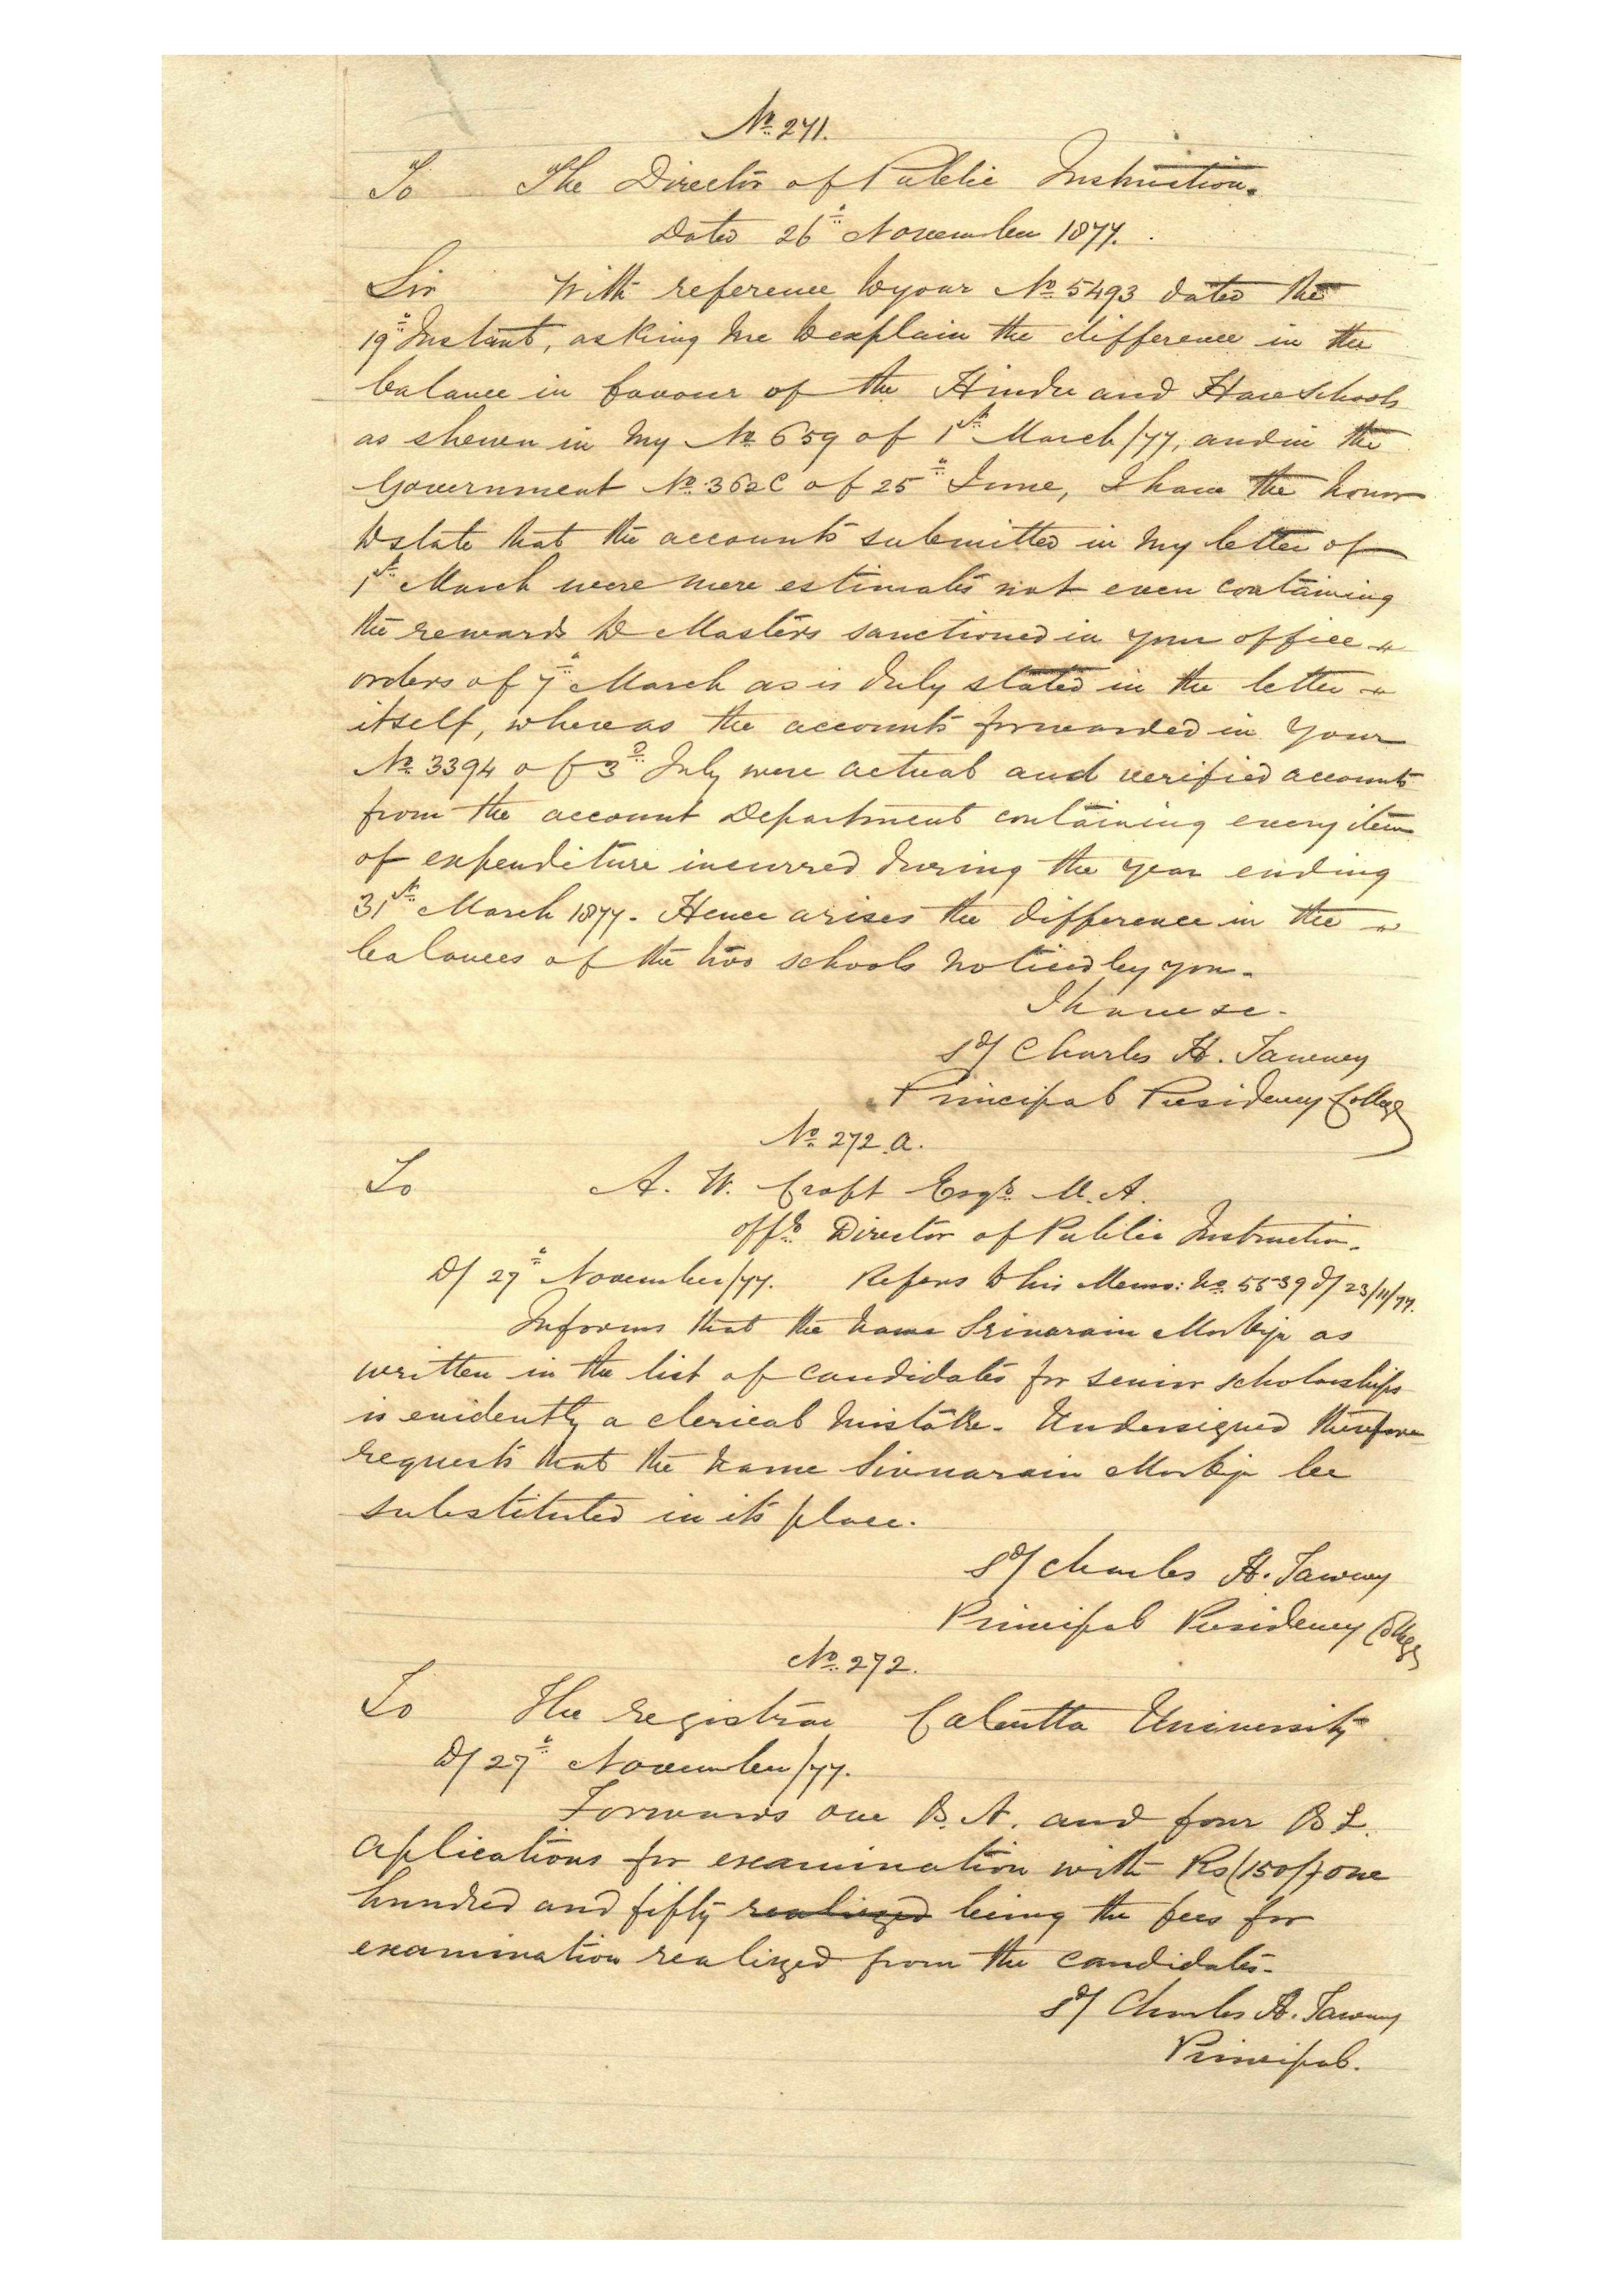 No. 271.
To The Director of Public Instruction.
Dated 26th November 1877.
Sir With reference to your No. 5493 dated the
19th Instant, asking me to explain the difference in the
balance in favour of the Hindu and Hare Schools
as shewn in my No. 659 of 1st March/77, and in the
Government No. 362C of 25th June, I have the honor
to state that the accounts submitted in my letter of
1st March were mere estimates not even containing
the rewards to Masters sanctioned in your office
orders of 7th March as is duly stated in the letter
itself, whereas the accounts forwarded in your
No. 3394 of 3d July were actual and verified accounts
from the account Department containing every item
of expenditure incurred during the year ending
31st March 1877. Hence arises the difference in the
balances of the two schools noticed by you.
I have &c.
Sd/ Charles H. Tawney
Principal Presidency College
No. 272.a.
To A. W. Croft Esqr. M.A.
Offg. Director of Public Instruction.
D/ 27th November/77. Refers to his Memo: No. 5539 d/ 23/11/77.
Informs that the name Srinarain as
written in the list of candidates for senior scholarships
is evidently a clerical mistake. Undersigned therefore
requests that the name Sivnarain be
substituted in its place.
Sd/ Charles H. Tawney
Principal Presidency College
No. 272.
To The registrar Calcutta University
D/ 27th November/77.
Forwards one B.A. and four B L.
Aplications for examination with Rs (150/) one
hundred and fifty realized being the fees for
examination realized from the candidates.
Sd/ Charles H. Tawney
Principal.